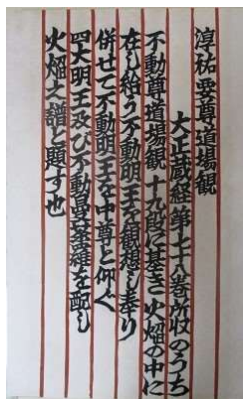 淳祐要尊道場観
大正蔵経第七十八巻所収のうち
不動尊道場観 十九段に基き 火焔の中に
在し給う不動明王を観想し奉り
併せて不動明王を中尊と仰ぐ
四大明王及び不動曼荼羅を配し
火焔之譜と題す也